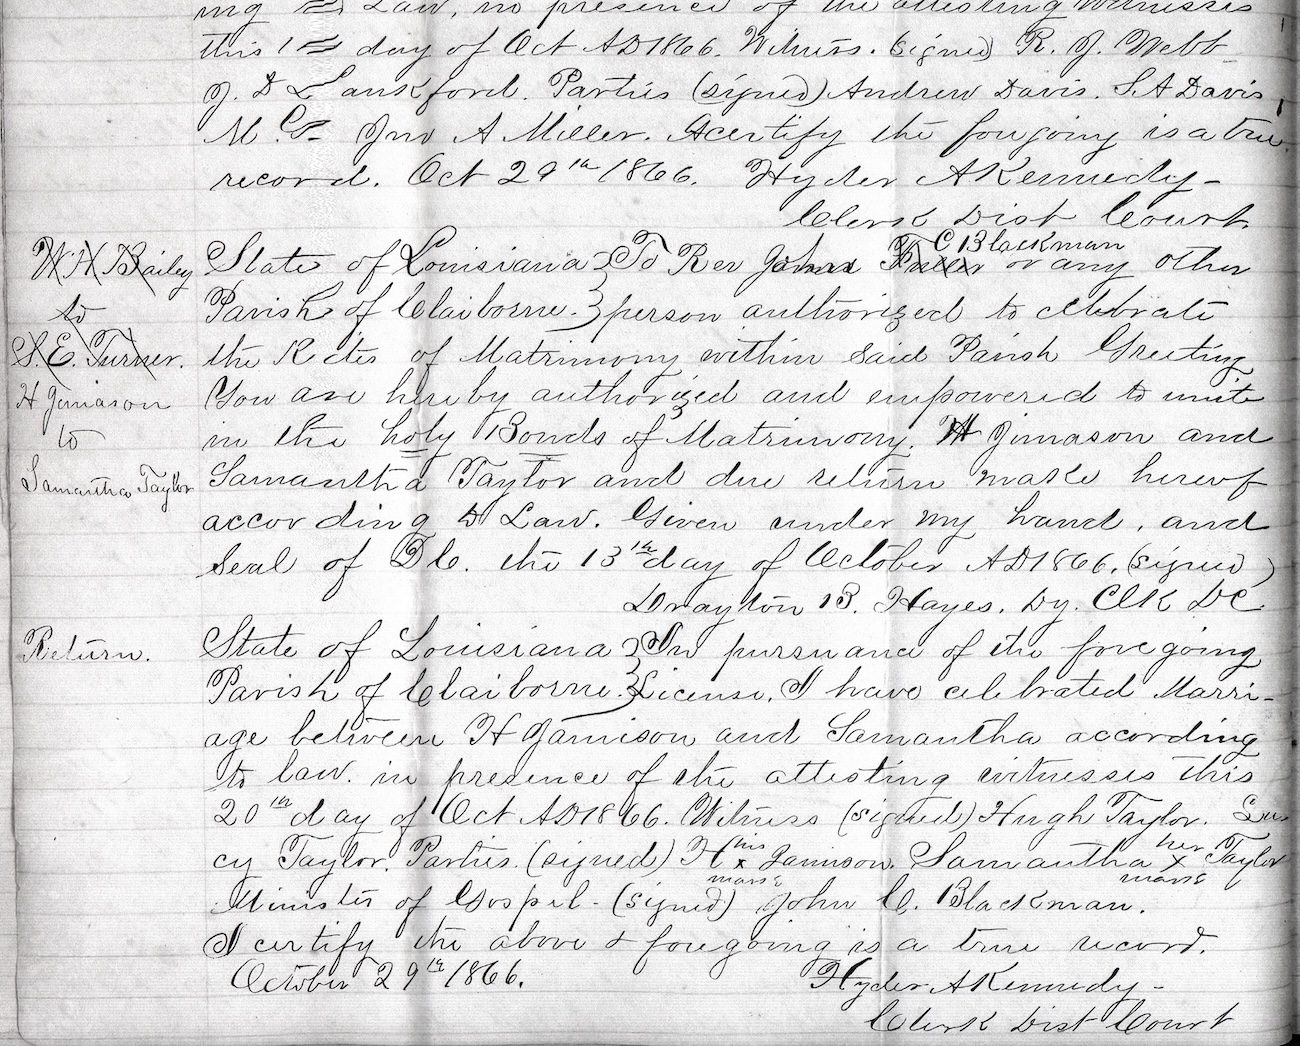 ing to Law, in presence of the attesting witnesses
this 1st day of Oct AD 1866. Witness. (signed) R. J. Webb
J. D Lankford. Parties (signed) Andrew Davis. S. A Davis,
M. G. Jno A Miller. I certify the forgoing is a true
record. Oct 29th 1866. Hyder A Kennedy-
Clerk Dist Court.
W. H. Bailey
to
S. E. Turner.
H Jimason
to
Samantha Taylor
C Blackman
State of Louisiana } To Rev John or any other
Parish of Claiborne. } person authorized to celebrate
the Rites of Matrimony within said Parish Greeting
You are hereby authorized and empowered to unite
in the holy Bonds of Matrimony. H Jimason and
Samantha Taylor and due return make hereof
according to Law. Given under my hand, and
Seal of D C. the 13th day of October AD 1866. (signed)
Drayton B. Hayes. Dy. Clk DC
Return.
State of Louisiana } In pursuance of the foregoing
Parish of Claiborne. } License, I have celebrated Marri-
age between H Jamison and Samantha according
to law. in presence of the attesting witnesses this
20th day of Oct AD 1866. Witness (signed) Hugh Taylor. Lu
cy Taylor. Parties. (signed) H his x mark Jamison. Samantha her x mark Taylor
Minister of Gospel- (signed) John C. Blackman.
I certify the above & foregoing is a true record.
October 29th 1866. Hyder A Kennedy-
Clerk Dist Court